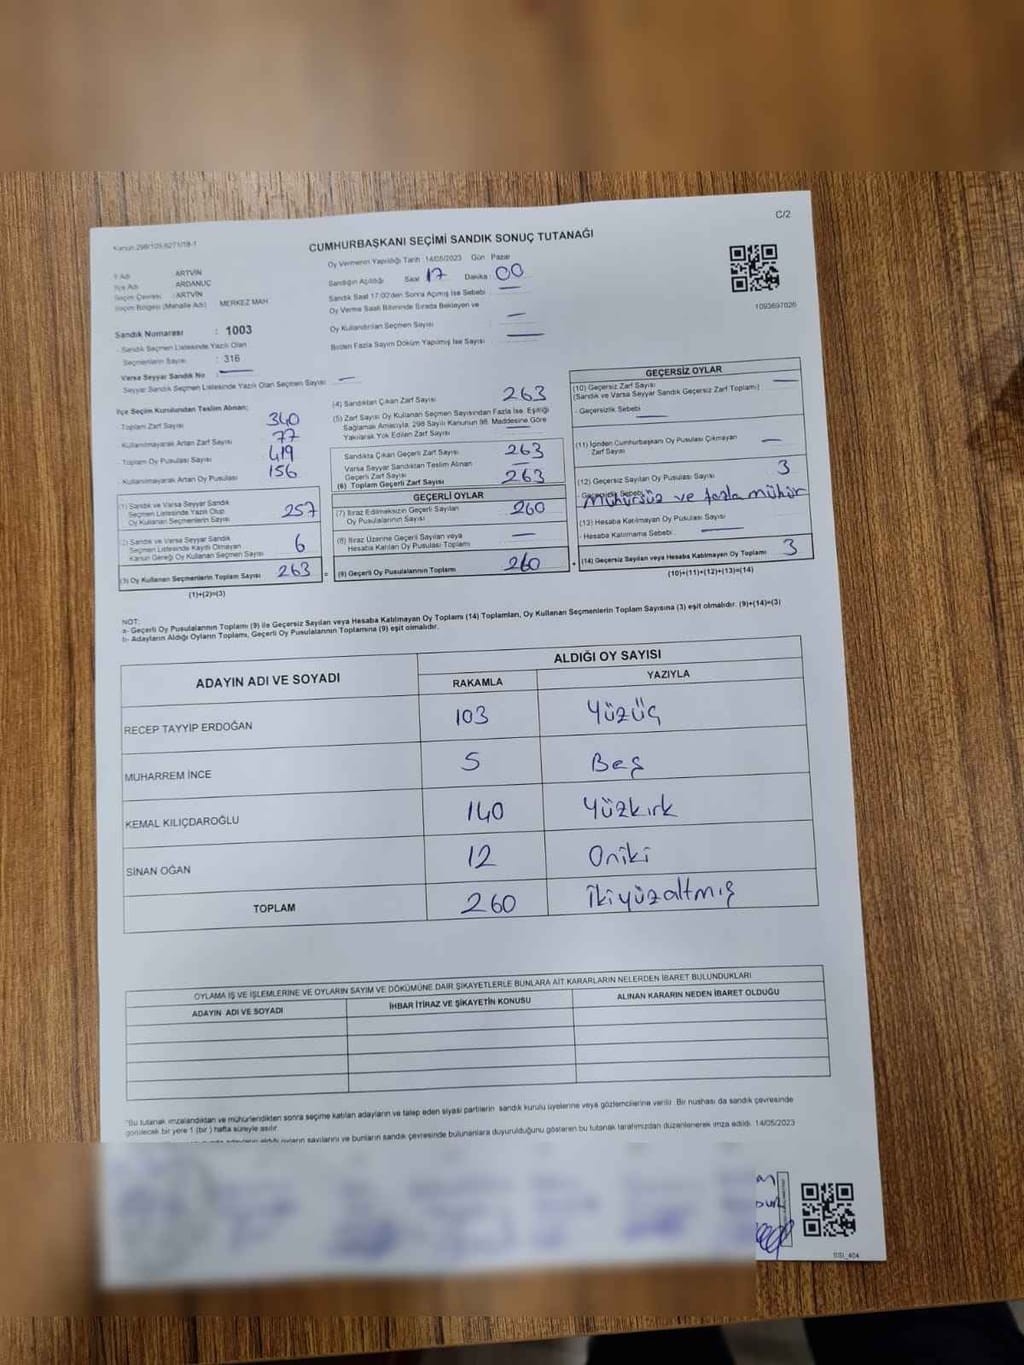 C/2
Kanun:298/105,6271/18-1
CUMHURBAŞKANI SEÇİMİ SANDIK SONUÇ TUTANAĞI
İl Adı : ARTVİN
İlçe Adı : ARDANUÇ
Seçim Çevresi : ARTVİN
Seçim Bölgesi (Mahalle Adı) MERKEZ MAH
Sandık Numarası : 1003
- Sandık Seçmen Listesinde Yazılı Olan
Seçmenlerin Sayısı : 316
Varsa Seyyar Sandık No
Seyyar Sandık Seçmen Listesinde Yazılı Olan Seçmen Sayısı
Oy Vermenin Yapıldığı Tarih :14/05/2023 Gün Pazar
Sandığın Açıldığı Saat 17 Dakika 00
Sandık Saat 17:00'den Sonra Açılmış İse Sebebi
Oy Verme Saati Bitiminde Sırada Bekleyen ve
Oy Kullandırılan Seçmen Sayısı
Birden Fazla Sayım Döküm Yapılmış İse Sayısı
1093697026
İlçe Seçim Kurulundan Teslim Alınan;
- Toplam Zarf Sayısı 340
- Kullanılmayarak Artan Zarf Sayısı 77
- Toplam Oy Pusulası Sayısı 419
- Kullanılmayarak Artan Oy Pusulası 156
(1) Sandık ve Varsa Seyyar Sandık
Seçmen Listesinde Yazılı Olup
Oy Kullanan Seçmenlerin Sayısı 257
(2) Sandık ve Varsa Seyyar Sandık
Seçmen Listesinde Kayıtlı Olmayan
Kanun Gereği Oy Kullanan Seçmen Sayısı 6
(3) Oy Kullanan Seçmenlerin Toplam Sayısı 263
(1)+(2)=(3)
=
(4) Sandıktan Çıkan Zarf Sayısı 263
(5) Zarf Sayısı Oy Kullanan Seçmen Sayısından Fazla İse, Eşitliği
Sağlamak Amacıyla, 298 Sayılı Kanunun 98. Maddesine Göre
Yakılarak Yok Edilen Zarf Sayısı
Sandıkta Çıkan Geçerli Zarf Sayısı 263
Varsa Seyyar Sandıktan Teslim Alınan
Geçerli Zarf Sayısı
(6) Toplam Geçerli Zarf Sayısı 263
GEÇERLİ OYLAR
(7) İtiraz Edilmeksizin Geçerli Sayılan
Oy Pusulalarının Sayısı 260
(8) İtiraz Üzerine Geçerli Sayılan veya
Hesaba Katılan Oy Pusulası Toplamı
(9) Geçerli Oy Pusulalarının Toplamı 260
+
GEÇERSİZ OYLAR
(10) Geçersiz Zarf Sayısı
(Sandık ve Varsa Seyyar Sandık Geçersiz Zarf Toplamı)
- Geçersizlik Sebebi
(11) İçinden Cumhurbaşkanı Oy Pusulası Çıkmayan
Zarf Sayısı
(12) Geçersiz Sayılan Oy Pusulası Sayısı 3
- Geçersizlik Sebebi Mühürsüz ve fazla mühür
(13) Hesaba Katılmayan Oy Pusulası Sayısı
- Hesaba Katılmama Sebebi
(14) Geçersiz Sayılan veya Hesaba Katılmayan Oy Toplamı 3
(10)+(11)+(12)+(13)=(14)
NOT:
a- Geçerli Oy Pusulalarının Toplamı (9) ile Geçersiz Sayılan veya Hesaba Katılmayan Oy Toplamı (14) Toplamları, Oy Kullanan Seçmenlerin Toplam Sayısına (3) eşit olmalıdır. (9)+(14)=(3)
b- Adayların Aldığı Oyların Toplamı, Geçerli Oy Pusulalarının Toplamına (9) eşit olmalıdır.
ADAYIN ADI VE SOYADI
ALDIĞI OY SAYISI
RAKAMLA YAZIYLA
RECEP TAYYİP ERDOĞAN 103 Yüzüç
MUHARREM İNCE 5 Beş
KEMAL KILIÇDAROĞLU 140 Yüzkırk
SİNAN OĞAN 12 Oniki
TOPLAM 260 İkiyüzaltmış
OYLAMA İŞ VE İŞLEMLERİNE VE OYLARIN SAYIM VE DÖKÜMÜNE DAİR ŞİKAYETLERLE BUNLARA AİT KARARLARIN NELERDEN İBARET BULUNDUKLARI
ADAYIN ADI VE SOYADI İHBAR İTİRAZ VE ŞİKAYETİN KONUSU ALINAN KARARIN NEDEN İBARET OLDUĞU
"Bu tutanak imzalandıktan ve mühürlendikten sonra seçime katılan adayların ve talep eden siyasi partilerin sandık kurulu üyelerine veya gözlemcilerine verilir. Bir nushası da sandık çevresinde
görülecek bir yere 1 (bir ) hafta süreyle asılır.
adayların aldığı oyların sayılarını ve bunların sandık çevresinde bulunanlara duyurulduğunu gösteren bu tutanak tarafımızdan düzenlenerek imza edildi. 14/05/2023